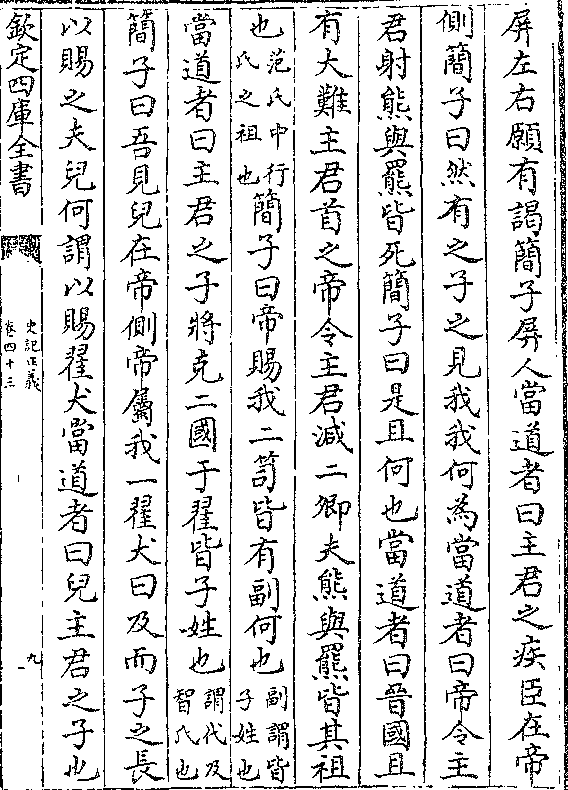 屏左右願有謁簡子屏人當道者曰主君之疾臣在帝
側簡子曰然有之子之見我我何為當道者曰帝令主
君射熊與羆皆死簡子曰是且何也當道者曰晉國且
有大難主君首之帝令主君滅二卿夫熊與羆皆其祖
也范氏中行氏之祖也簡子曰帝賜我二笥皆有副何也副謂皆子姓也
當道者曰主君之子將克二國于翟皆子姓也謂代及智氏也
簡子曰吾見兒在帝側帝屬我一翟犬曰及而子之長
以賜之夫兒何謂以賜翟犬當道者曰兒主君之子也
欽定四庫全書
史記正義
卷四十三
九